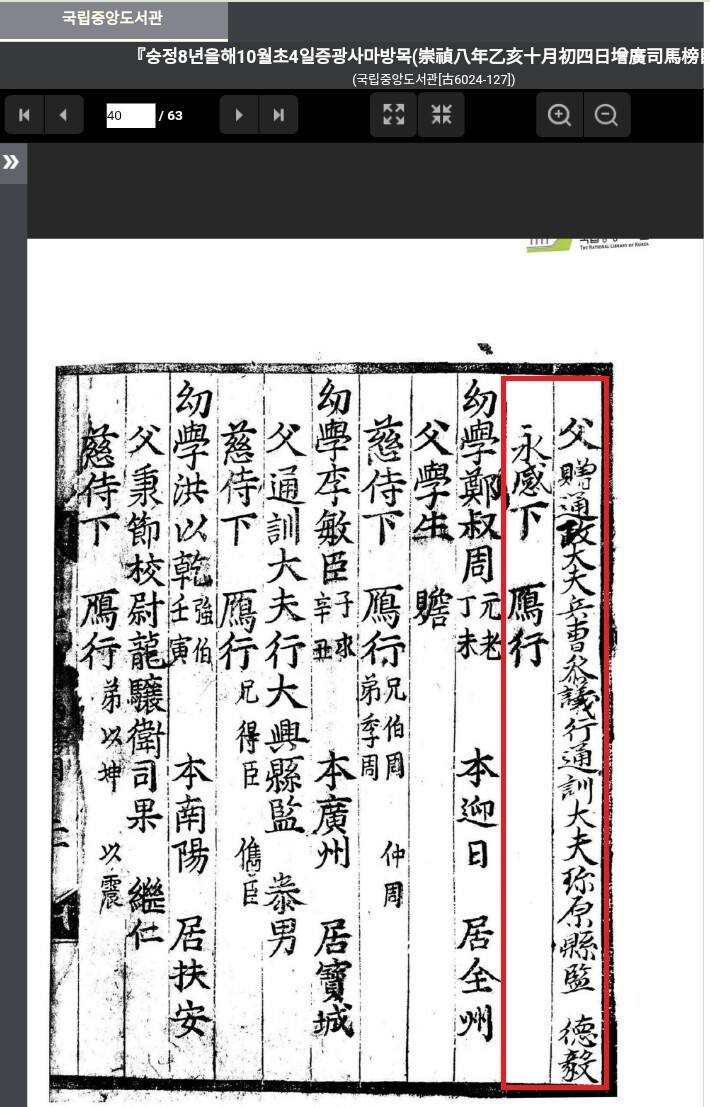 국립중앙도서관
『숭정8년을해10월초4일증광사마방목(崇禎八年乙亥十月初四日增廣司馬榜目
(국립중앙도서관[古6024-127])
40 / 63
THE NATIONAL LIBRARY OF KOREA
父 贈通政大夫兵曹叅議行通訓大夫珎原縣監 德毅
永感下 鴈行
幼學鄭叔周 元老 丁未 本迎日 居全州
父學生 贍
慈侍下 鴈行 兄伯周 仲周 弟季周
幼學李敏臣 子求 辛丑 本廣州 居寶城
父通訓大夫行大興縣監 泰男
慈侍下 鴈行 兄得臣 儁臣
幼學洪以乾 強伯 壬寅 本南陽 居扶安
父秉節校尉龍驤衛司果 繼仁
慈侍下 鴈行 弟以坤 以震